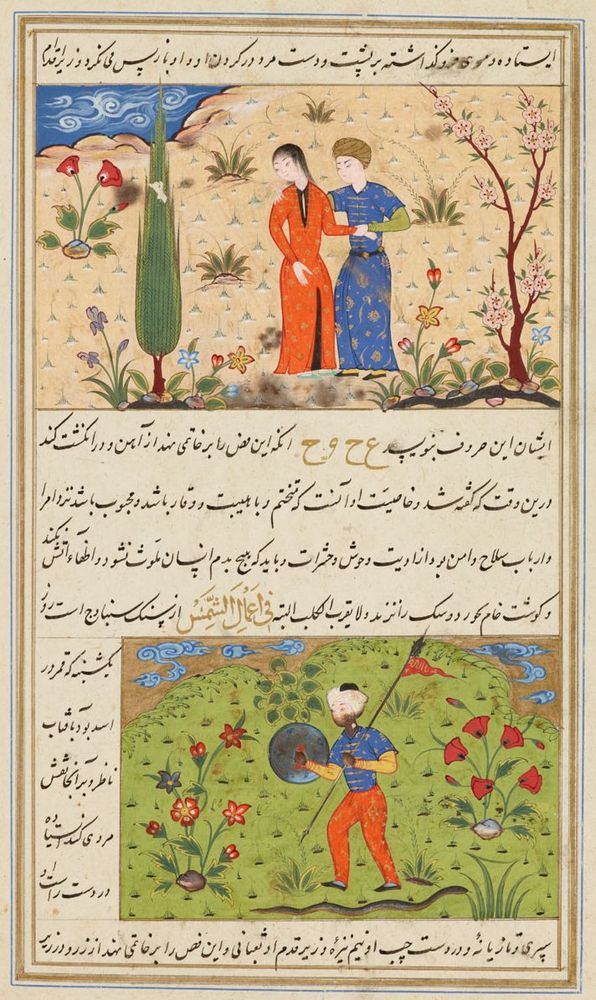 ایستاده و موی فرو گذاشته بر پشت و دست مرد در گردن او و او باز پس می نگرد و زیر اقدام
ایشان این حروف بنویسد ع ح و ح انکه این فص را بر خاتمی نهد از آهن و در انکشت کند
درین وقت که کفته شد و خاصیت او آنست که متختم با هیبت و وقار باشد و محبوب باشد نزد امرا
و ارباب سلاح و امن بود از اذیت وحوش و حشرات و باید که هیچ بدم انسان ملوث نشود و اطفاء آتش نکند
و کوشت خام نخورد و سک را نزند ولا یقرب الکلب البته فی اعمال الشمس از سنک سنباذج است روز
یکشنبه که قمر در
اسد بود و بآفتاب
ناظر و بر آنجا نقش
مردی کند ایستاده
در دست راست او
سپری و تازیانه و در دست چپ او نیم نیزه و زیر قدم او ثعبانی و این فص را بر خاتمی نهد از زر و در زیر